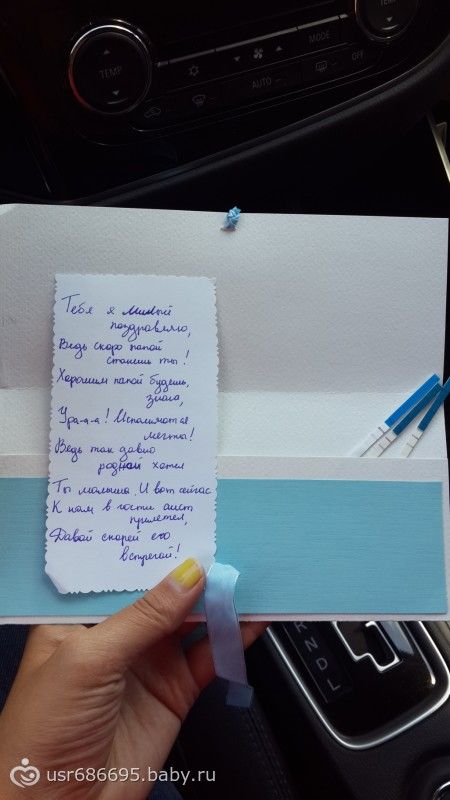 TEMP
MODE
TEMP
AUTO
OFF
Тебя я милый
поздравляю,
Ведь скоро папой
станешь ты!
Хорошим папой будешь,
знаю,
Ура-а-а! Исполнится
мечта!
Ведь так давно
родной хотел
Ты малыша. И вот сейчас
К нам в гости аист
прилетел,
Давай скорей его
встречай!
R
N
D
L
usr686695.baby.ru